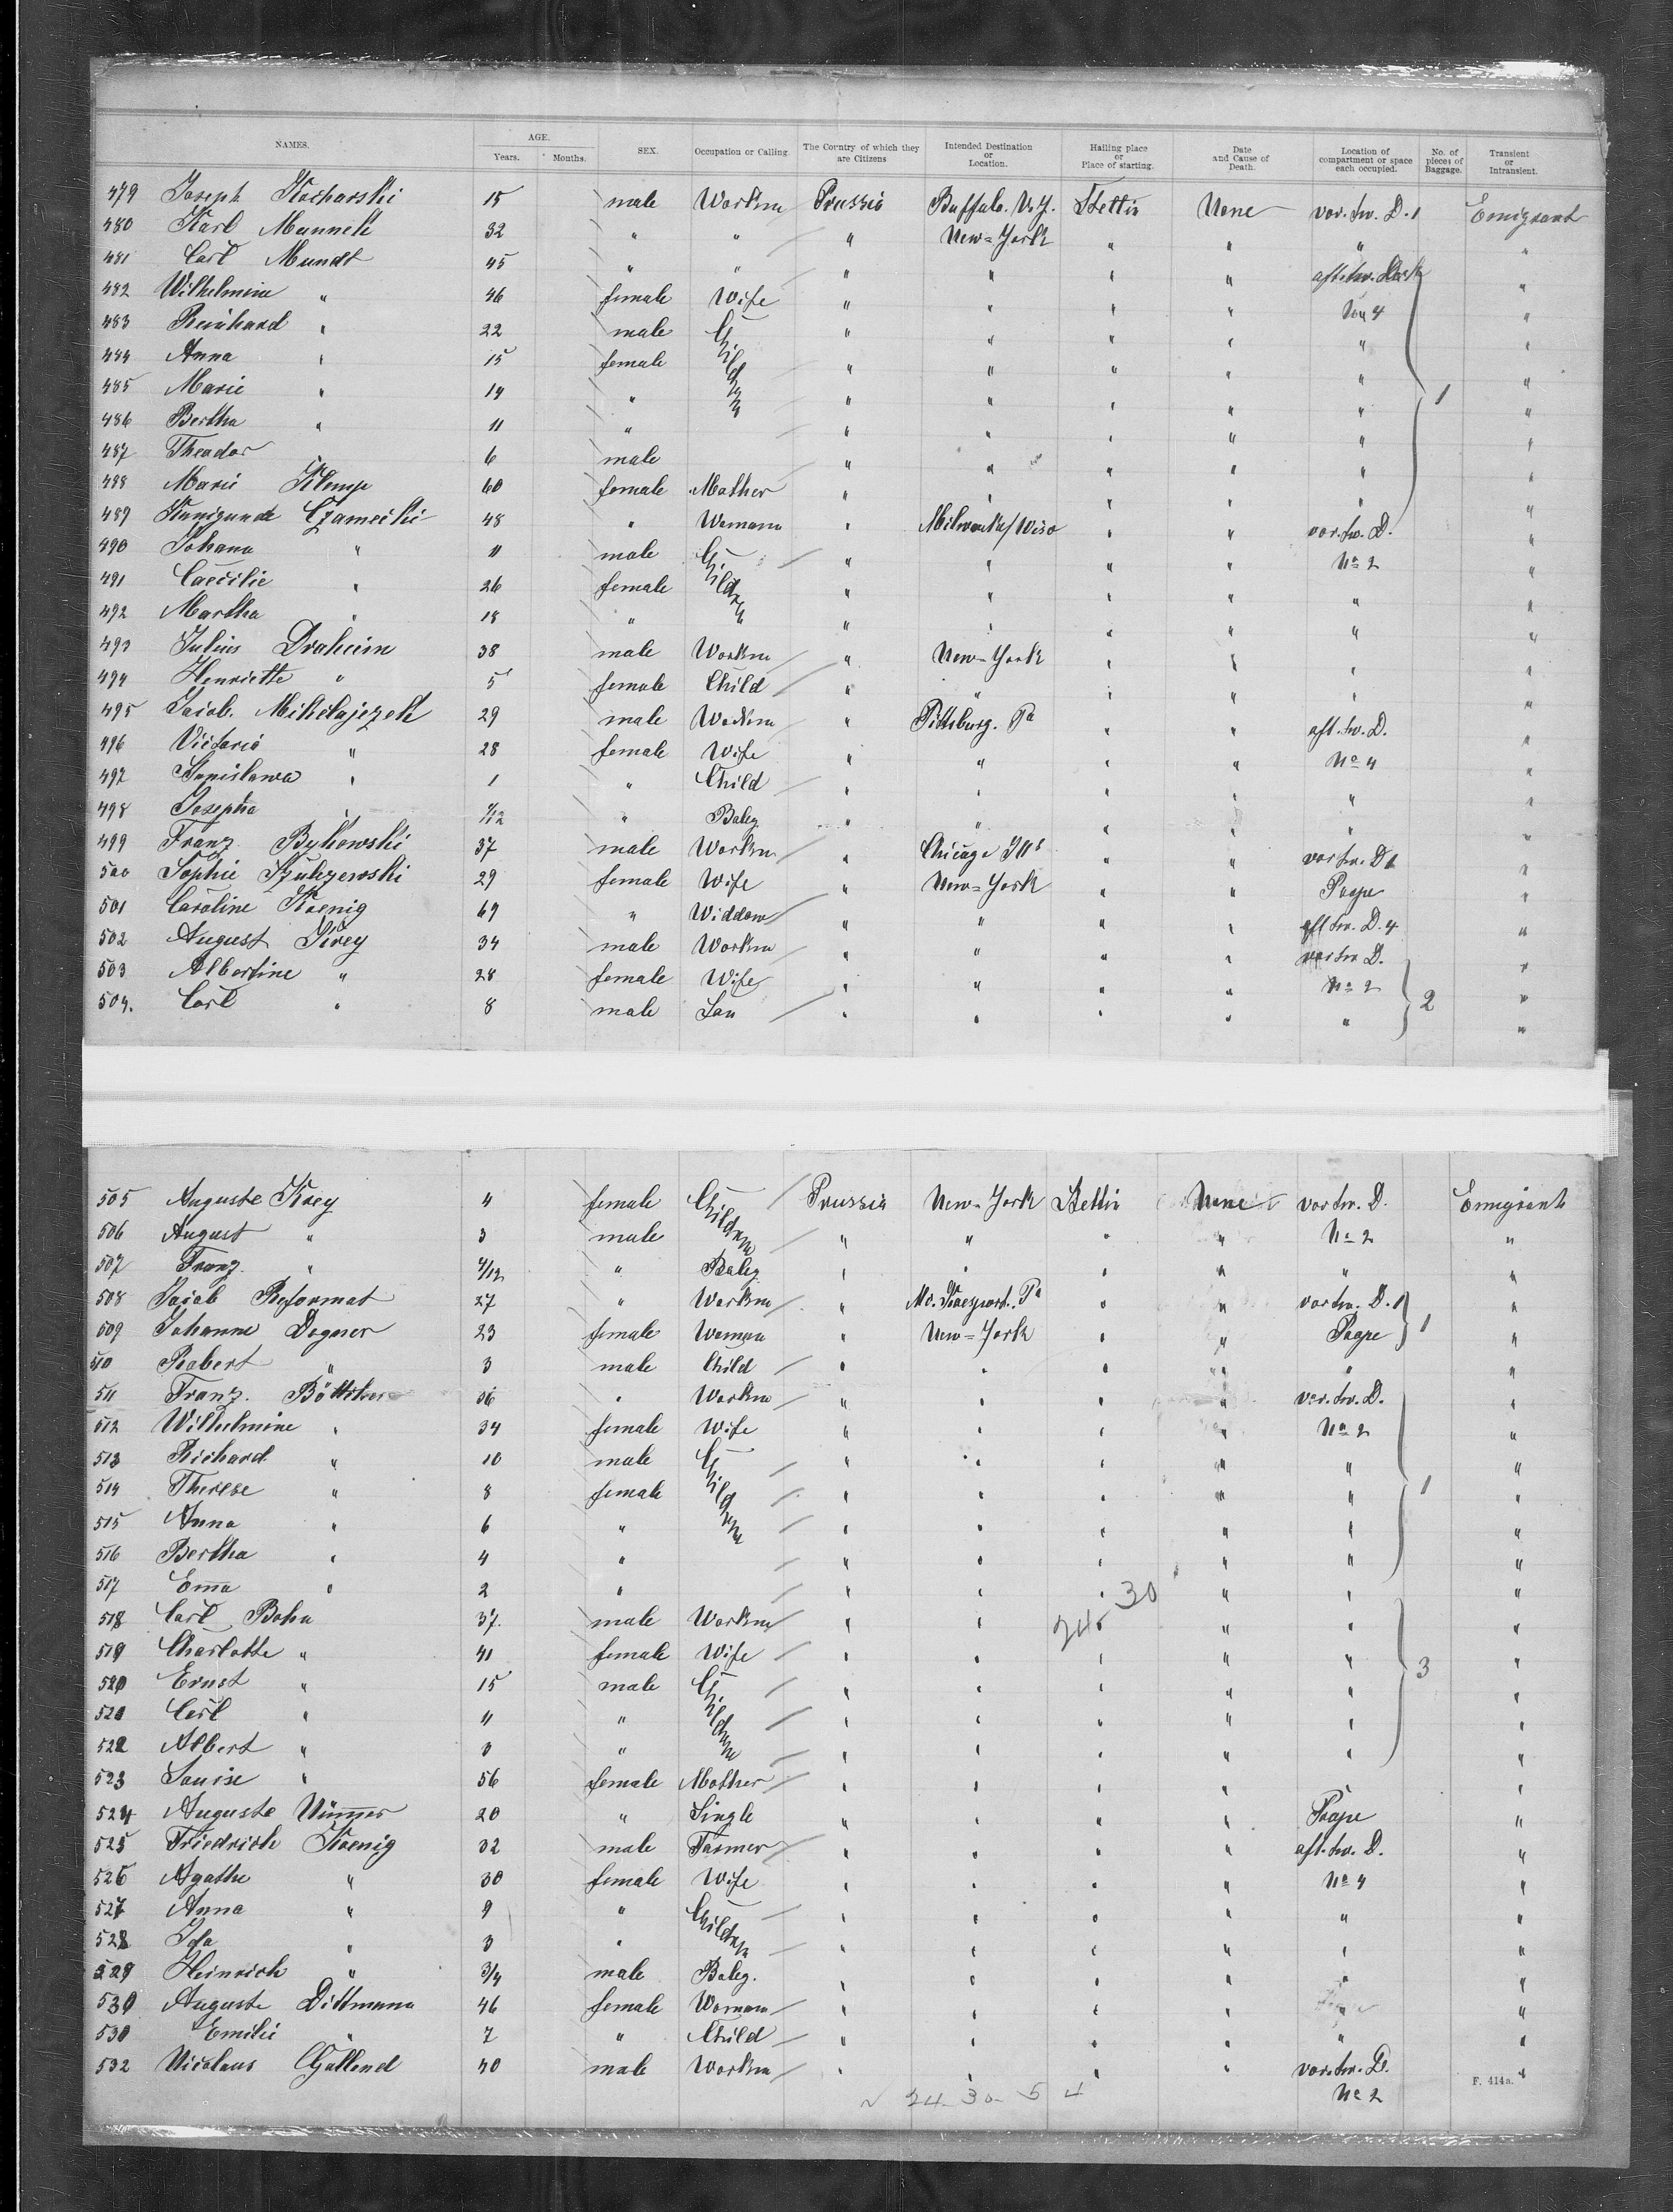 NAMES. AGE. Years. Months. SEX. Occupation or Calling. The Corntry of which they are Citizens Intended Destination or Location. Hailing place or Place of starting. Date and Cause of Death. Location of compartment or space each occupied. No. of pieces of Baggage. Transient or Intransient.
479 Joseph Kocharski 15 male Workm Prussia Buffalo. N.Y. Stettin None vor. tw. D. 1 Emigrant
480 Karl Munnek 32 " " " New-York " " " "
481 Carl Mundt 45 " " " " " " aft. tw. Deck "
482 Wilhelmine " 46 female Wife " " " " No 4 "
483 Reinhard " 22 male Children " " " " " "
484 Anna " 15 female " " " " " "
485 Marie " 14 " " " " " " 1 "
486 Bertha " 11 " " " " " " "
487 Theodor 6 male " " " " " "
488 Marie Klemp 60 female Mother " " " " " "
489 Kunigunde Czarnecki 48 " Womann " Milwauke/Wisc " " vor. tw. D. "
490 Johann " 11 male Children " " " " No 2 "
491 Caecilie " 26 female " " " " " "
492 Martha " 18 " " " " " " "
493 Julius Draheim 38 male Workm " New-York " " " "
494 Henriette " 5 female Child " " " " " "
495 Jacob. Mikolajczek 29 male Workm " Pittsburg. Pa " " aft. tw. D. "
496 Victoria " 28 female Wife " " " " No 4 "
497 Stanislawa " 1 " Child " " " " " "
498 Josepha " /12 " Baby " " " " " "
499 Franz Bykowski 37 male Workm " Chicago Ills " " vor tw. D 1 "
500 Sophie 29 female Wife " New-York " " Poope "
501 Caroline Koenig 69 " Widdow " " " " aft tw. D. 4 "
502 August Krey 34 male Workm " " " " vor tw D. "
503 Albertine " 28 female Wife " " " " No 2 "
504. Carl " 8 male Son " " " " " 2 "
505 Auguste Krey 4 female Children Prussia New-York Stettin None vor tw. D. Emigrant
506 August " 3 male " " " " No 2 "
507 Franz " /12 " Baby " " " " " "
508 Jacob Reformat 27 " Workm " Mc. Keesport. Pa " " vor tw. D. 1 "
509 Johanne Dogner 23 female Woman " New-York " " Poope 1 "
510 Robert " 3 male Child " " " " " "
511 Franz. Böttcher 36 " Workm " " " " vor. tw. D. "
512 Wilhelmine " 34 female Wife " " " " No 2 "
513 Richard " 10 male Children " " " " " "
514 Therese " 8 female " " " " " 1 "
515 Anna " 6 " " " " " " "
516 Bertha " 4 " " " " " " "
517 Ema " 2 " " " " 30 " " "
518 Carl Bohn 37. male Workm " " 24 " " "
519 Charlotte " 41 female Wife " " " " " "
520 Ernst " 15 male Children " " " " " 3 "
521 Carl " 11 " " " " " " "
522 Albert " 3 " " " " " " "
523 Louise " 56 female Mother " " " " "
524 Auguste 20 " Single " " " " Poope "
525 Friedrich Koenig 32 male Farmer " " " " aft. tw. D. "
526 Agathe " 30 female Wife " " " " No 4 "
527 Anna " 9 " Children " " " " " "
528 Ida " 3 " " " " " " "
529 Heinrich " 3/4 male Baby. " " " " " "
530 Auguste Dittmann 46 female Woman " " " " " "
530 Emilie " 7 " Child " " " " " "
532 Nicolaus 40 male Workm " " " " vor. tw. D. "
24 - 30 - 5 4 No 2 F. 414a.